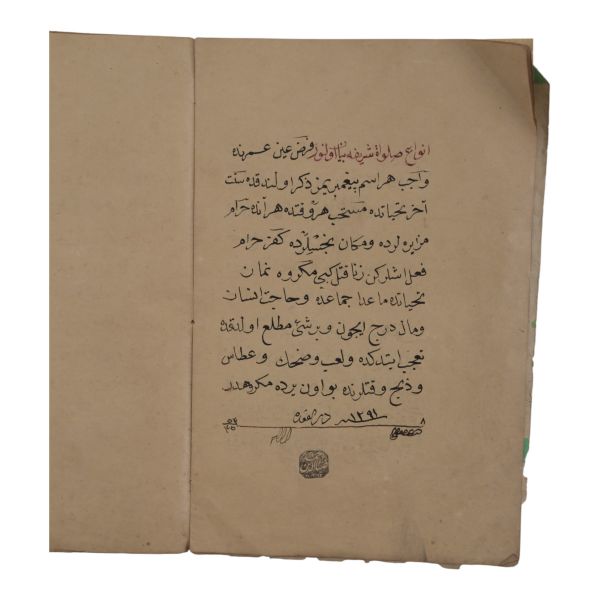 انواع صلواة شريفه بيان اولنور فرض عين عمرنده
واجب هر اسم پيغمبريمز ذكر اولندقده سنت
آخر تحياتده مستحب هر وقتده هر آنده حرام
مزبله لرده ومكان نجسلرده كفر حرام
فعل اشلركن زنا قتل كبى مكروه نماز
تحياتنده ماعدا جماعده وحاجت انسان
ومال درج ايچون وبر شئ مطلع اولندقده
تعجب ايتدكده ولعب وضحك وعطاس
وذبح وقتلرنده بو اون يرده مكروهدر
سنه ١٢٩١
٨